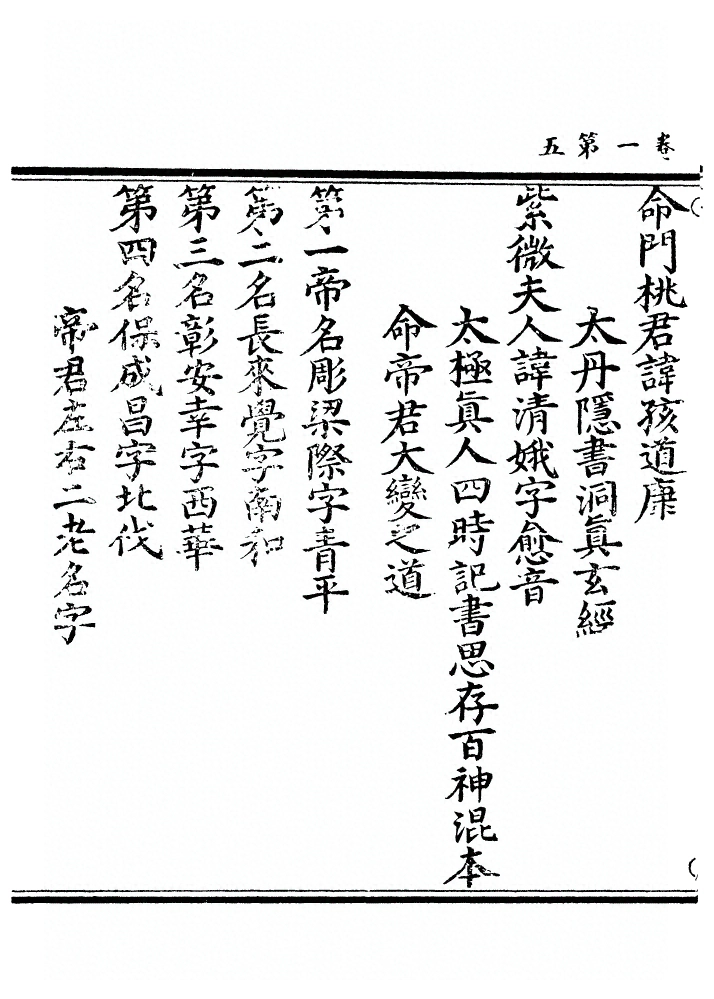 卷一第五
命門桃君諱孩道康
太丹隱書洞真玄經
紫微夫人諱清娥字愈音
太極真人四時記書思存百神混本
命帝君大變之道
第一帝名彫梁際字青平
第二名長來覺字南和
第三名彰安幸字西華
第四名保成昌字北伐
帝君左右二老名字